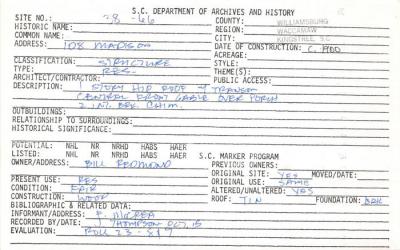 S.C. DEPARTMENT OF ARCHIVES AND HISTORY
SITE NO.: 28-66 COUNTY: WILLIAMSBURG
HISTORIC NAME: REGION: WACCAMAW
COMMON NAME: CITY: KINGSTREE S.C.
ADDRESS: 108 MADISON DATE OF CONSTRUCTION: C. 1900
ACREAGE:
CLASSIFICATION: STRUCTURE STYLE:
TYPE: RES- THEME(S):
ARCHITECT/CONTRACTOR: PUBLIC ACCESS:
DESCRIPTION: STORY HIP ROOF TRANSOM
CENTRAL FRONT GABLE OVER PORCH
2 INT. BRK CHIM.
OUTBUILDINGS:
RELATIONSHIP TO SURROUNDINGS:
HISTORICAL SIGNIFICANCE:
POTENTIAL: NHL NR NRHD HABS HAER
LISTED: NHL NR NRHD HABS HAER S.C. MARKER PROGRAM
OWNER/ADDRESS: BILL REDMOND PREVIOUS OWNERS:
ORIGINAL SITE: YES MOVED/DATE:
PRESENT USE: RES ORIGINAL USE: SAME
CONDITION: FAIR ALTERED/UNALTERED: YES
CONSTRUCTION: WOOD ROOF: TIN FOUNDATION: BRK
BIBLIOGRAPHIC & RELATED DATA:
INFORMANT/ADDRESS: F. MCCREA
RECORDED BY/DATE: J. THOMPSON OCT. 15
EVALUATION: ROLL 23-8&9